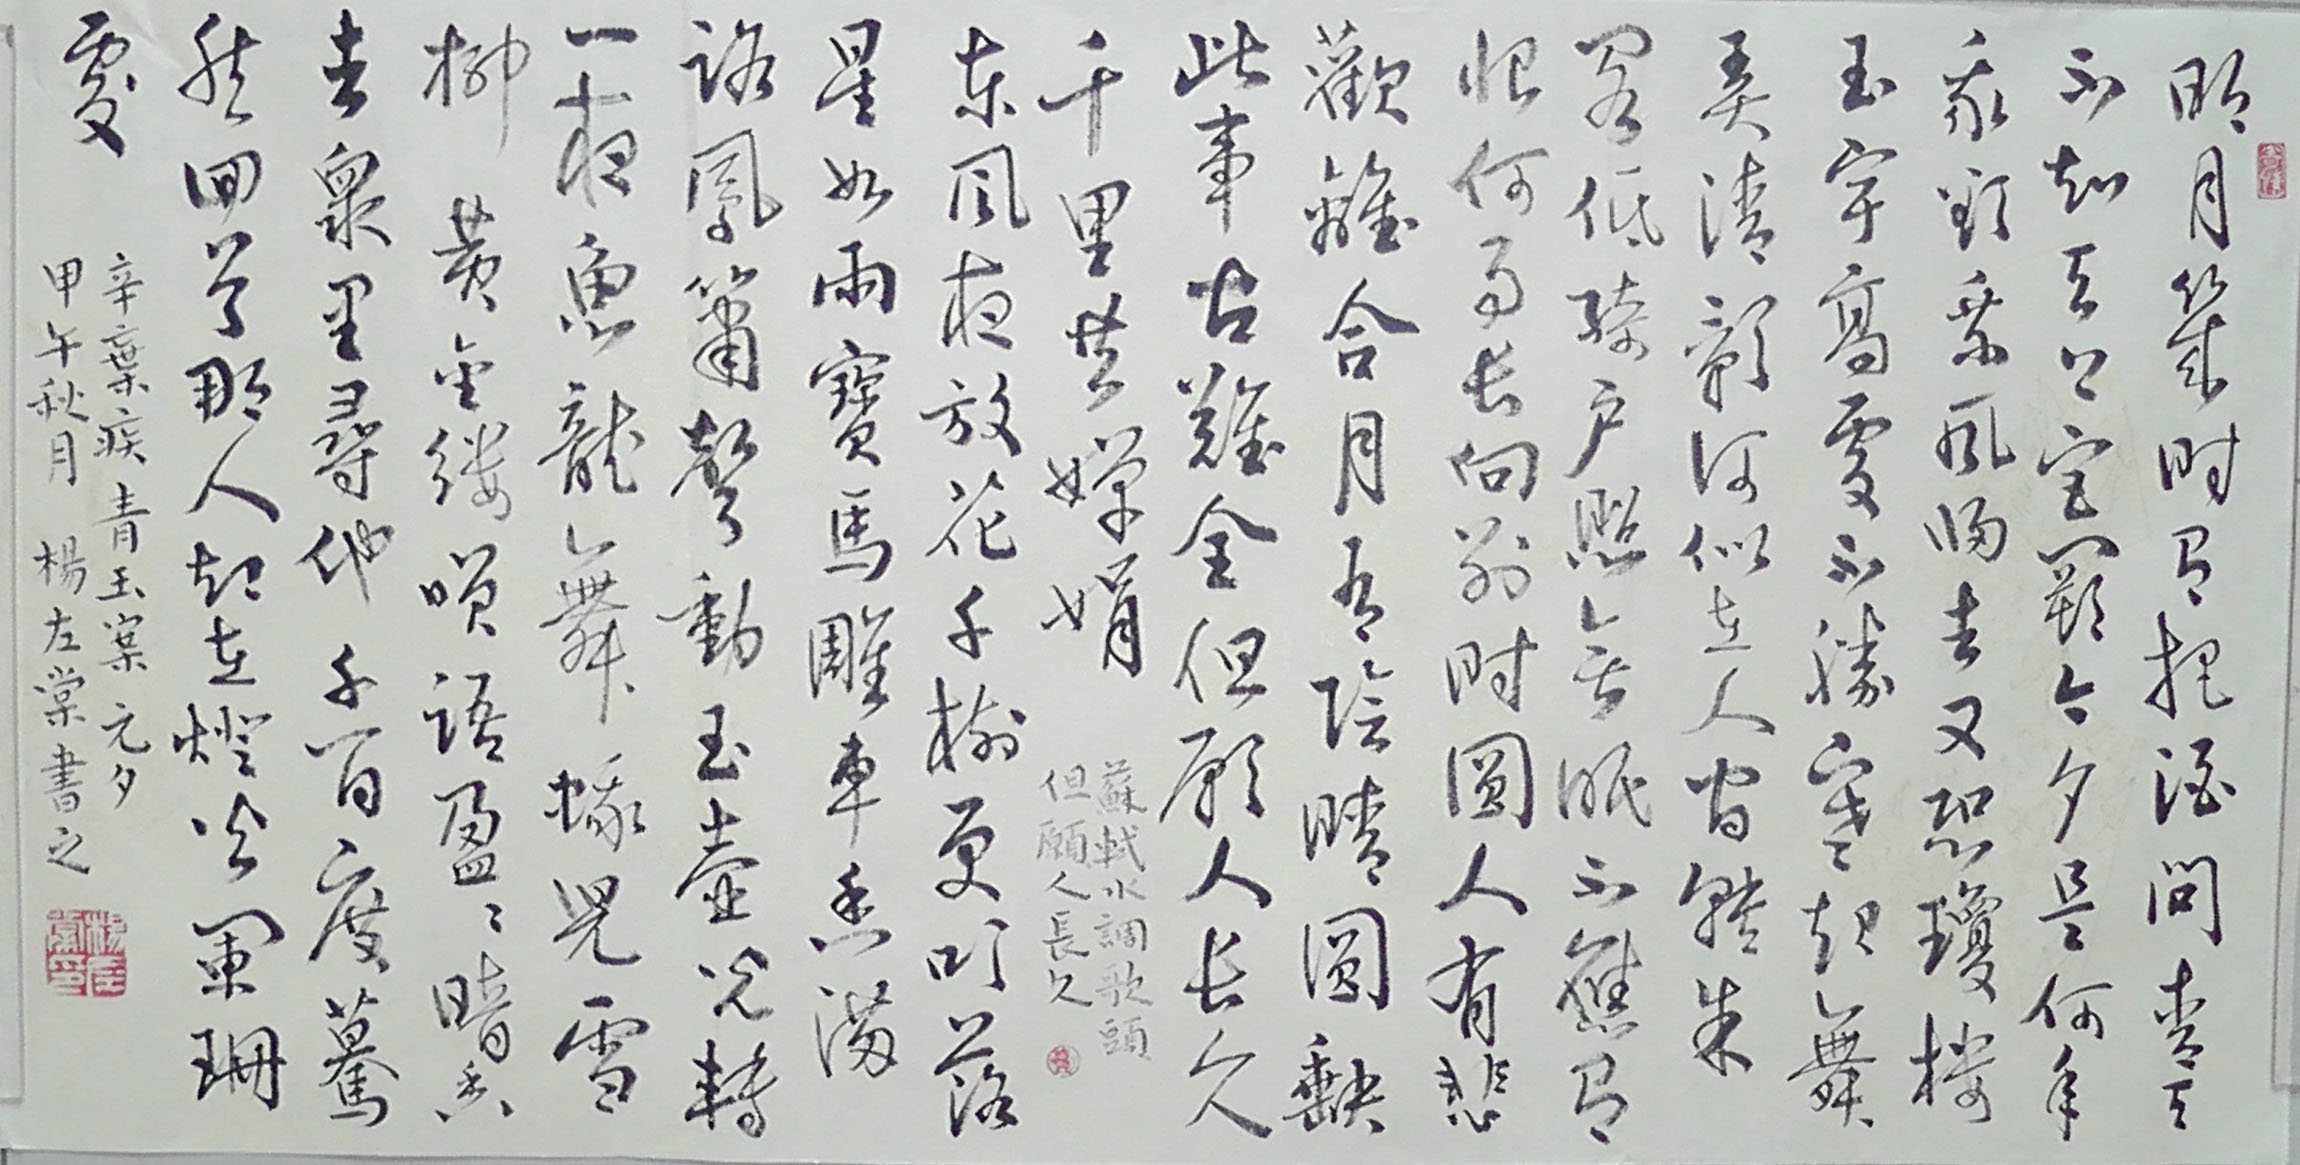 明月幾时有把酒问青天
不知天上宫闕今夕是何年
我欲乘风归去又恐瓊楼
玉宇高處不勝寒起舞
弄清影何似在人间转朱
阁低绮户照无眠不应有
恨何事长向别时圆人有悲
歡離合月有陰晴圆缺
此事古難全但願人长久
千里共嬋娟
蘇軾水調歌頭
但願人長久
东风夜放花千树更吹落
星如雨寶馬雕車香满
路鳳簫聲動玉壺光轉
一夜魚龍舞 蛾兒雪
柳 黄金缕笑語盈々暗香
去衆里尋他千百度蓦
然回首那人却在燈火阑珊
處
辛棄疾青玉案元夕
甲午秋月 楊左棠書之